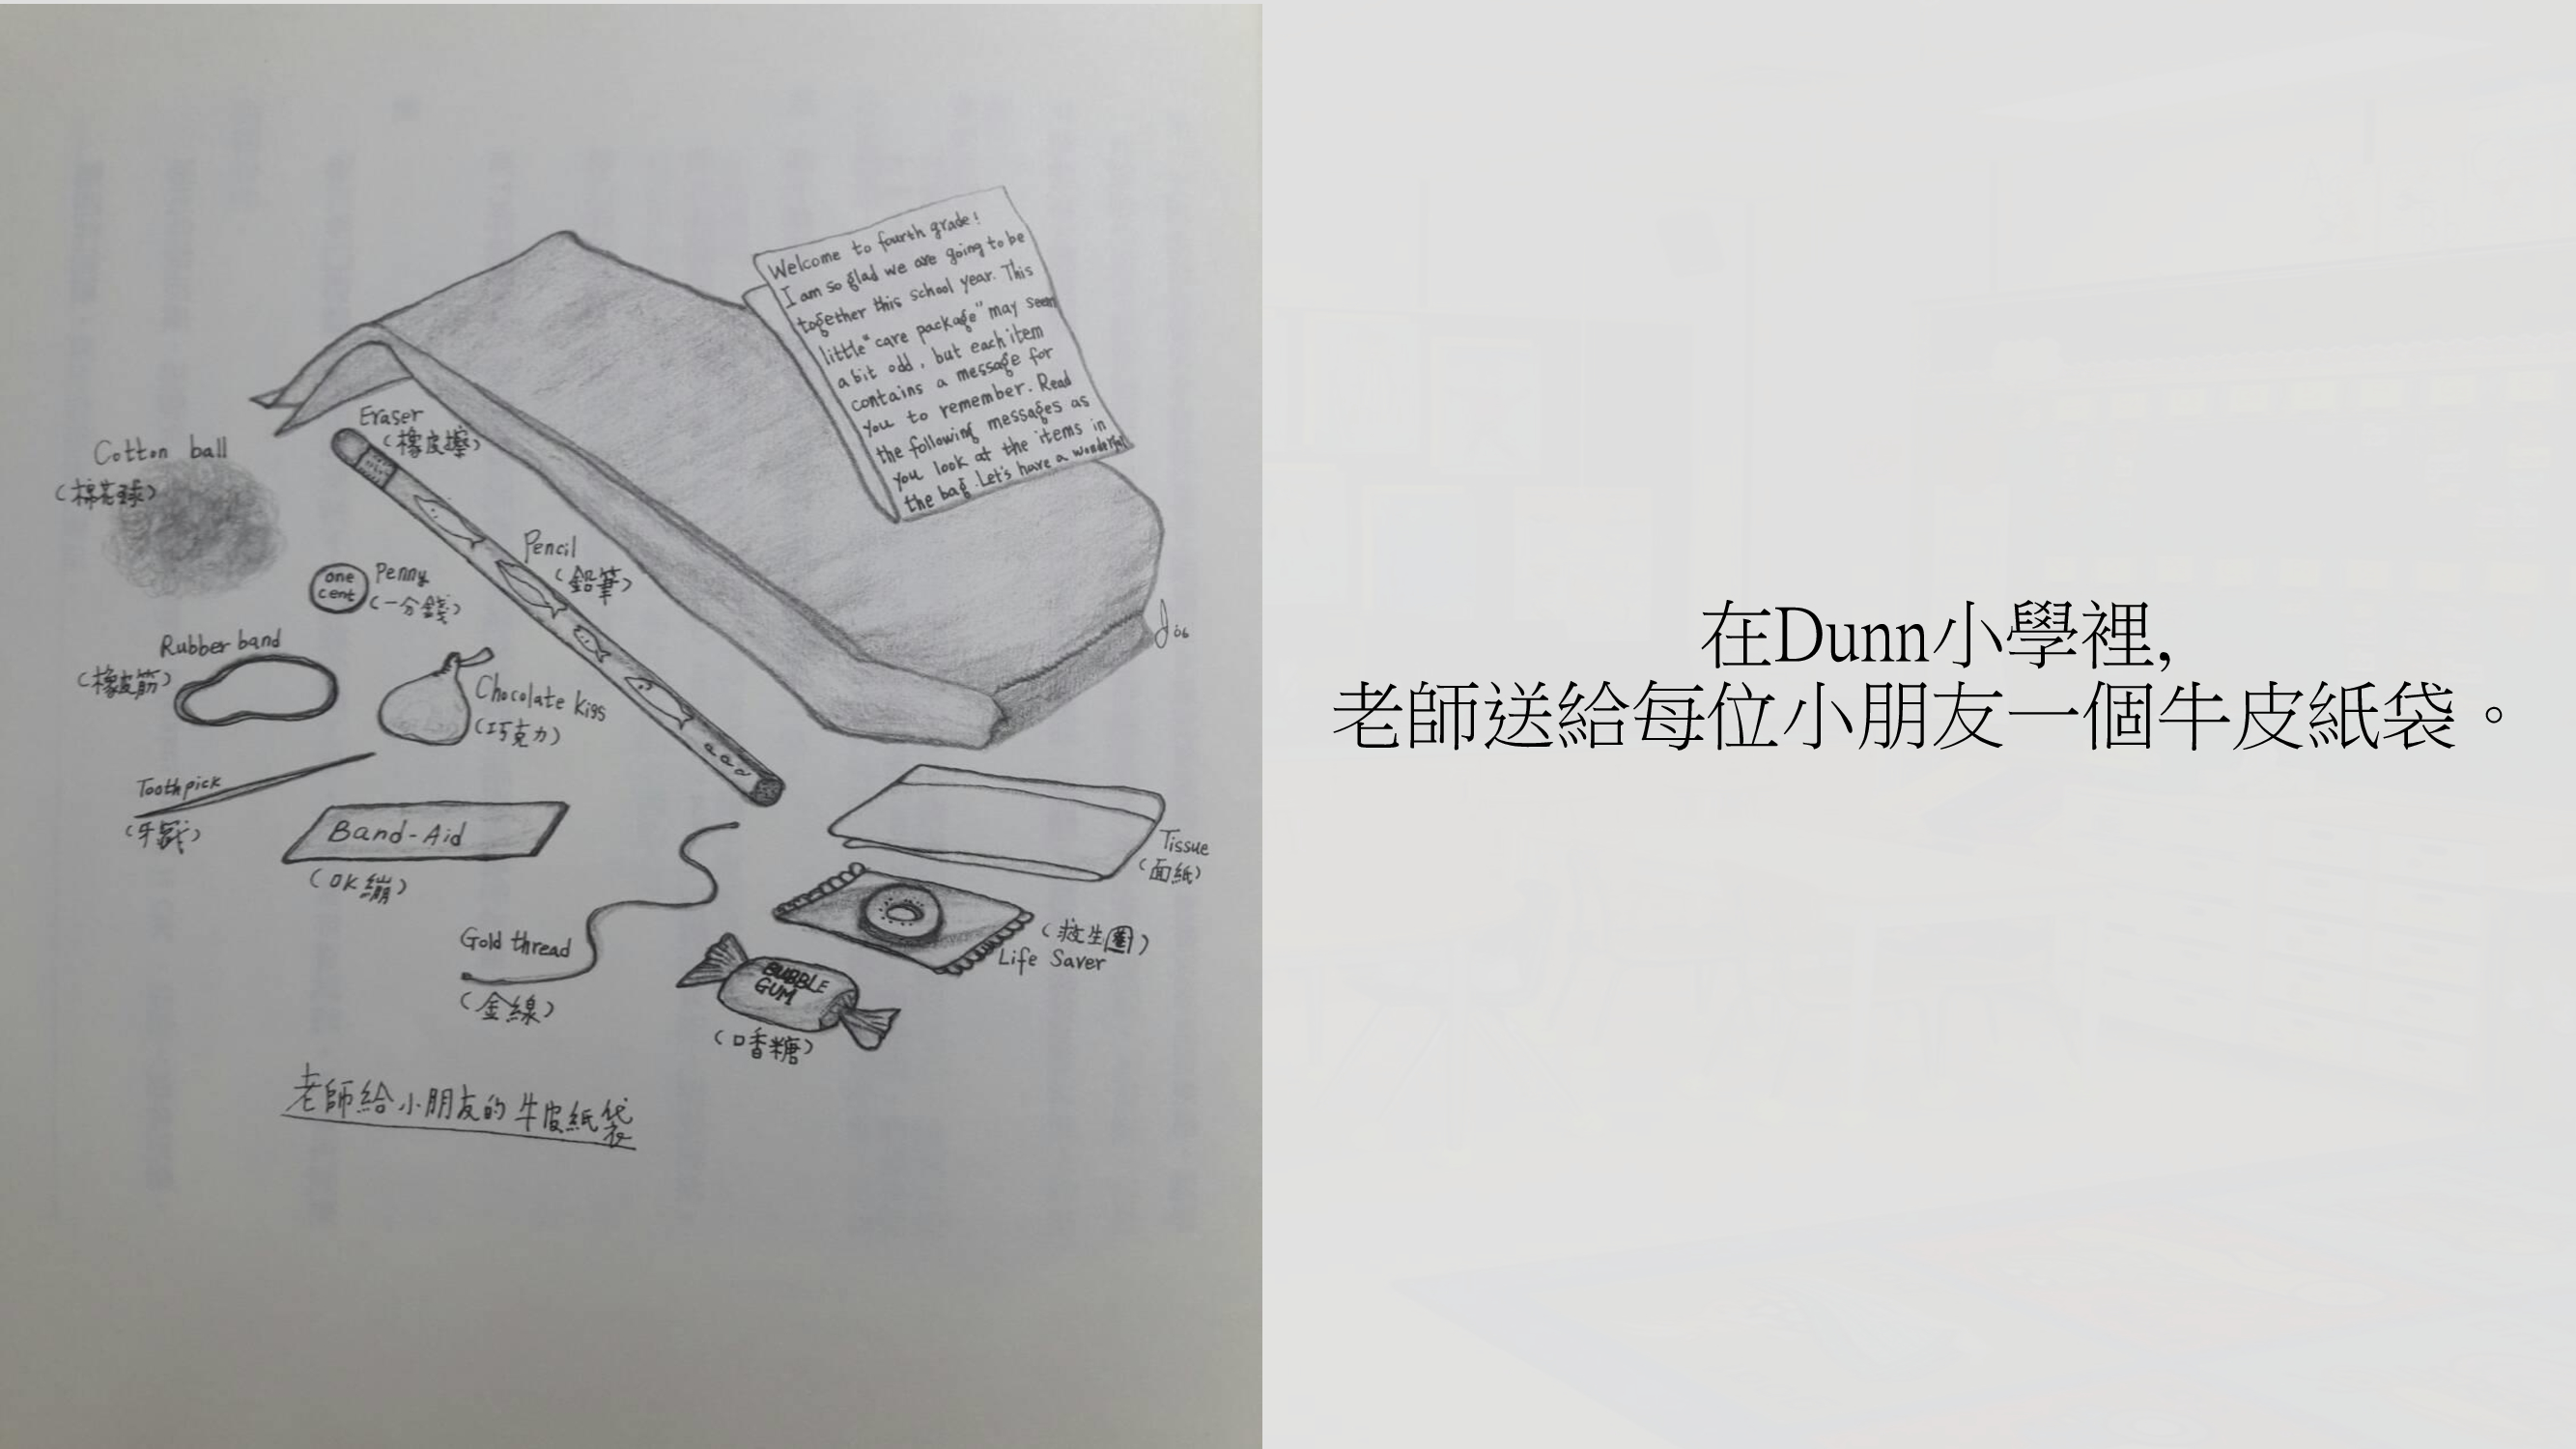 Welcome to fourth grade!
I am so glad we are going to be
together this school year. This
little "care package" may seem
a bit odd, but each item
contains a message for
you to remember. Read
the following messages as
you look at the items in
the bag. Let's have a wonderful
Eraser
(橡皮擦)
Cotton ball
(棉花球)
Pencil
(鉛筆)
one
cent
Penny
(一分錢)
Rubber band
(橡皮筋)
Chocolate kiss
(巧克力)
Toothpick
(牙籤)
Band-Aid
(OK繃)
Tissue
(面紙)
(救生圈)
Life Saver
Gold thread
(金線)
BUBBLE
GUM
(口香糖)
老師給小朋友的牛皮紙袋
在Dunn小學裡,
老師送給每位小朋友一個牛皮紙袋。